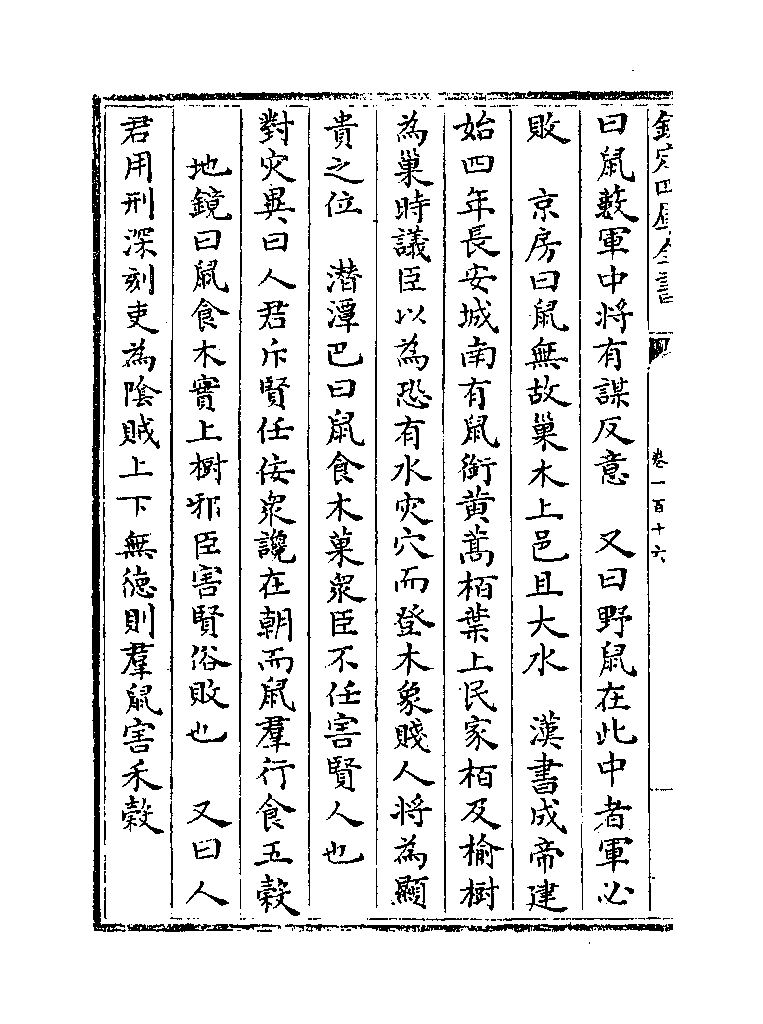 欽定四庫全書
卷一百十六
曰鼠藪軍中將有謀反意　又曰野鼠在此中者軍必
敗　京房曰鼠無故巢木上邑且大水　漢書成帝建
始四年長安城南有鼠銜黃蒿栢葉上民家栢及榆樹
為巢時議臣以為恐有水灾穴而登木象賤人將為顯
貴之位　潛潭巴曰鼠食木菓衆臣不任害賢人也
對灾異曰人君斥賢任佞衆讒在朝而鼠羣行食五穀
地鏡曰鼠食木實上樹邪臣害賢俗敗也　又曰人
君用刑深刻吏為陰賊上下無徳則羣鼠害禾穀